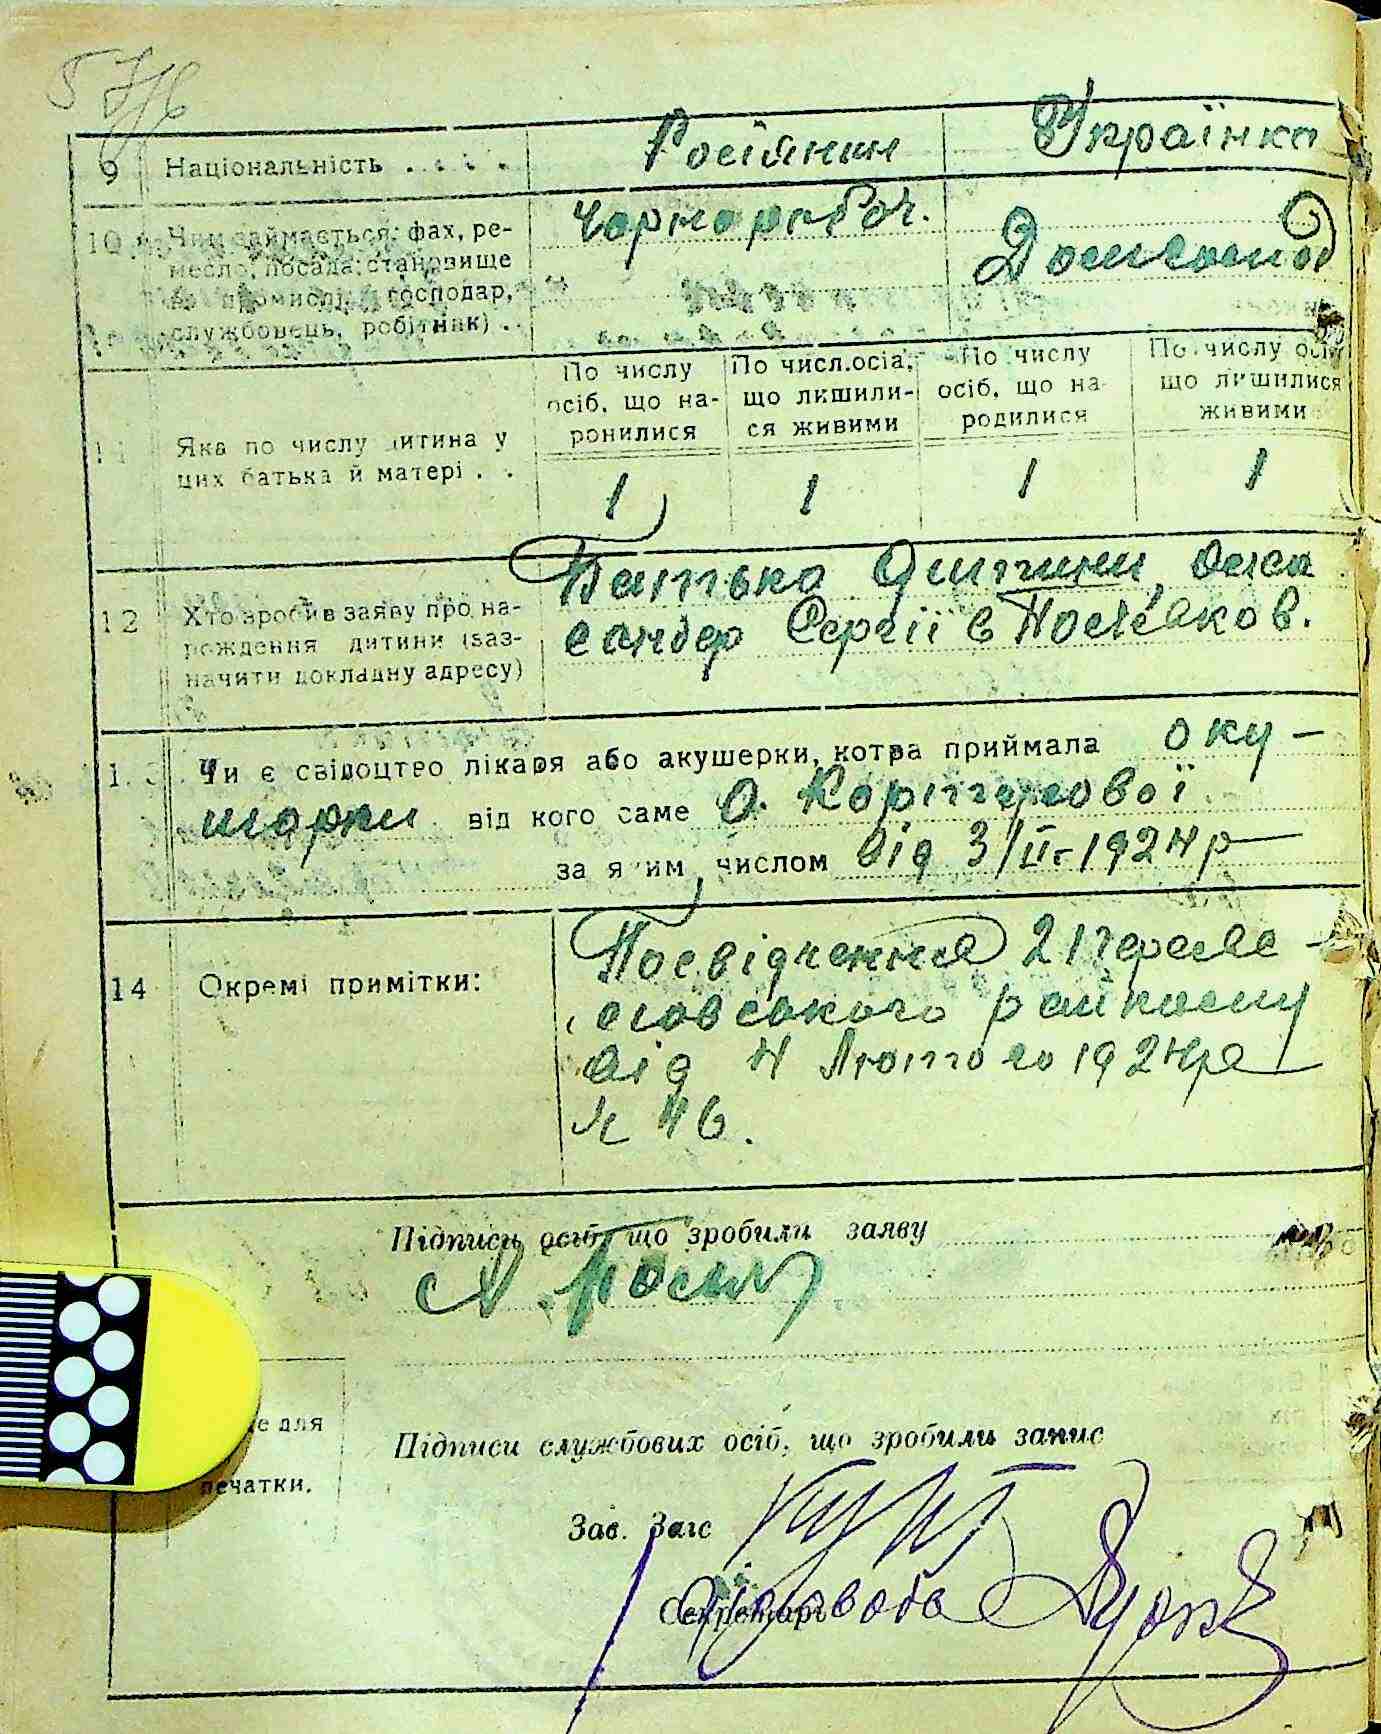 9 Національність . . . . . Росіянин Українка
10 Чим займається: фах, ре- чорнороб оч.
месло, посада; становище Домгоспод
в промислі, господар,
службовець, робітник) .
По числу По числ.осіа, По числу По числу осіб
осіб, що на- що лишили- осіб, що на- що лишилися
ронилися ся живими родилися живими
11 Яка по числу дитина у
цих батька й матері . . 1 1 1 1
12 Хто зробив заяву про на- Батько дитини, Олек
рождення дитини (заз- сандр Сергіїв Поляков.
начити докладну адресу)
1. Чи є свідоцтво лікаря або акушерки, котра приймала аку-
шорки від кого саме О.
за яким числом від 3/II-1924 р
14 Окремі примітки: Посвідчення 2
райкому
від 4 Лютого 1924 р
№ 46.
Підписи осіб, що зробили заяву
А.
е для
печатки.
Підписи службових осіб, що зробили запис
Зав. Загс
Секретарь